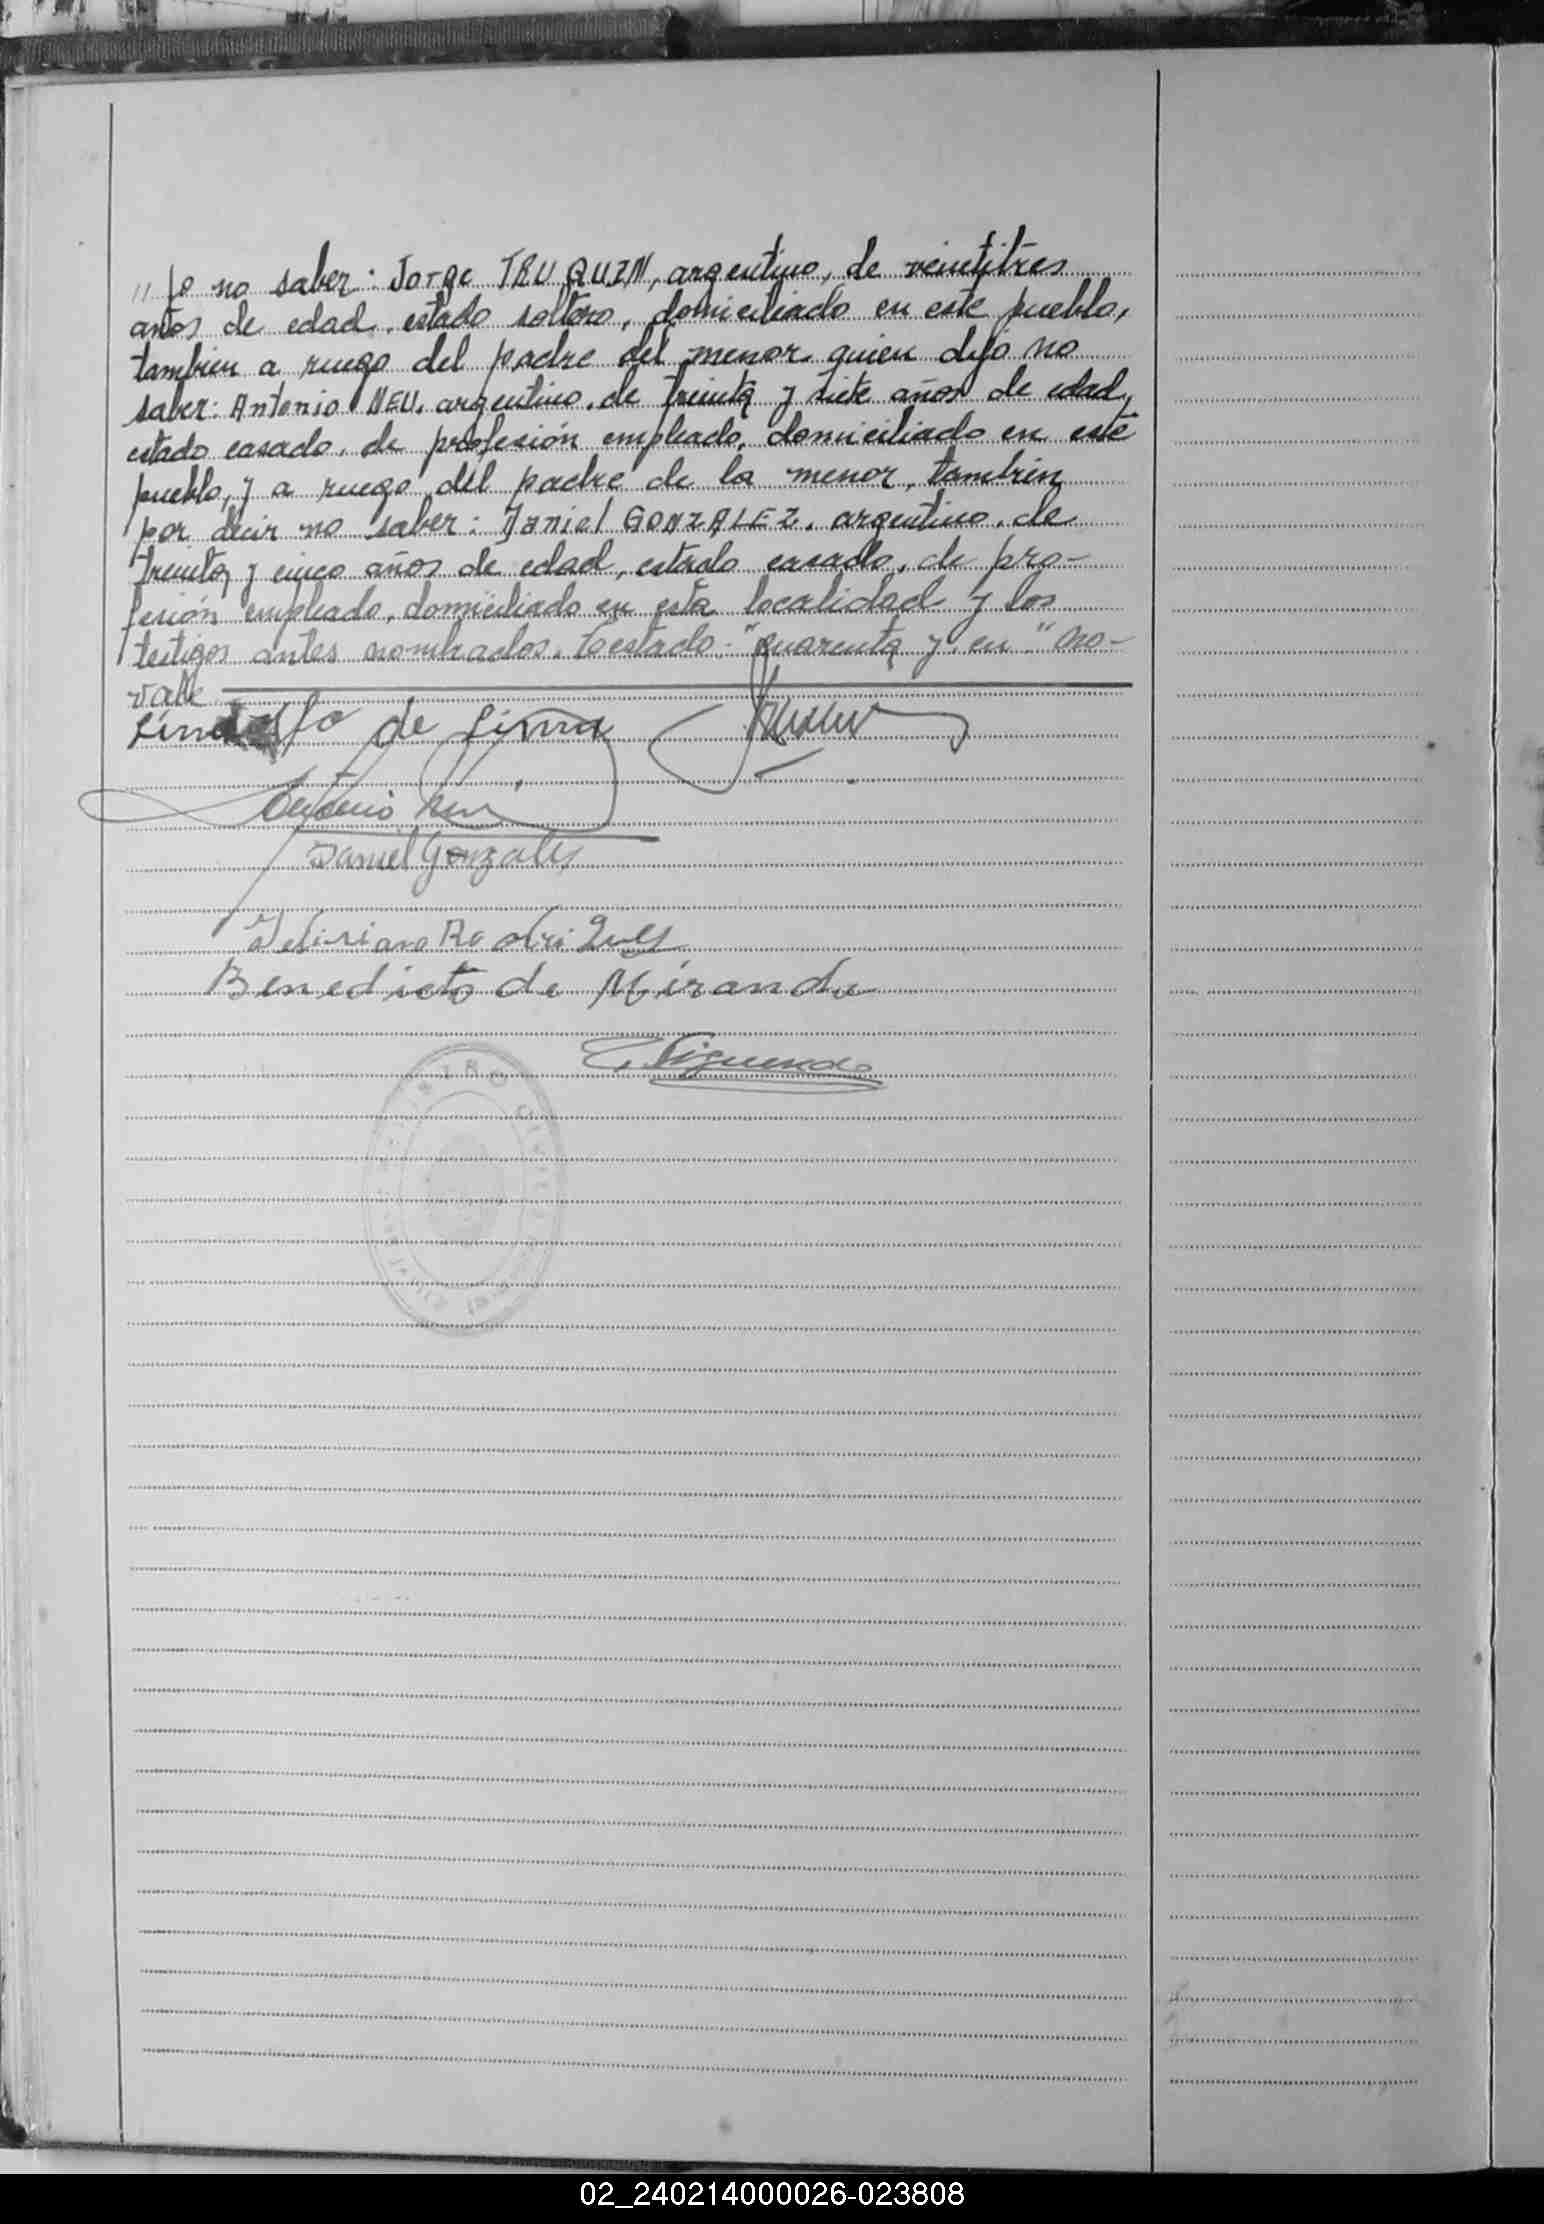 "jo no saber: Jorge TRUQUIN, argentino, de veintitres
años de edad, estado soltero, domiciliado en este pueblo,
tambien a ruego del padre del menor quien dijo no
saber: Antonio NEU, argentino, de treinta y siete años de edad,
estado casado, de profesión empleado, domiciliado en este
pueblo, y a ruego del padre de la menor, tambien
por decir no saber: Daniel GONZALEZ, argentino, de
treinta y cinco años de edad, estado casado, de pro-
fesión empleado, domiciliado en esta localidad y los
testigos antes nombrados. Testado: "cuarenta y en" No-
vale
de Lima
Antonio Neu
Daniel Gonzales
Rodrigues
Benedicto de Miranda
REGISTRO CIVIL
02_240214000026-023808